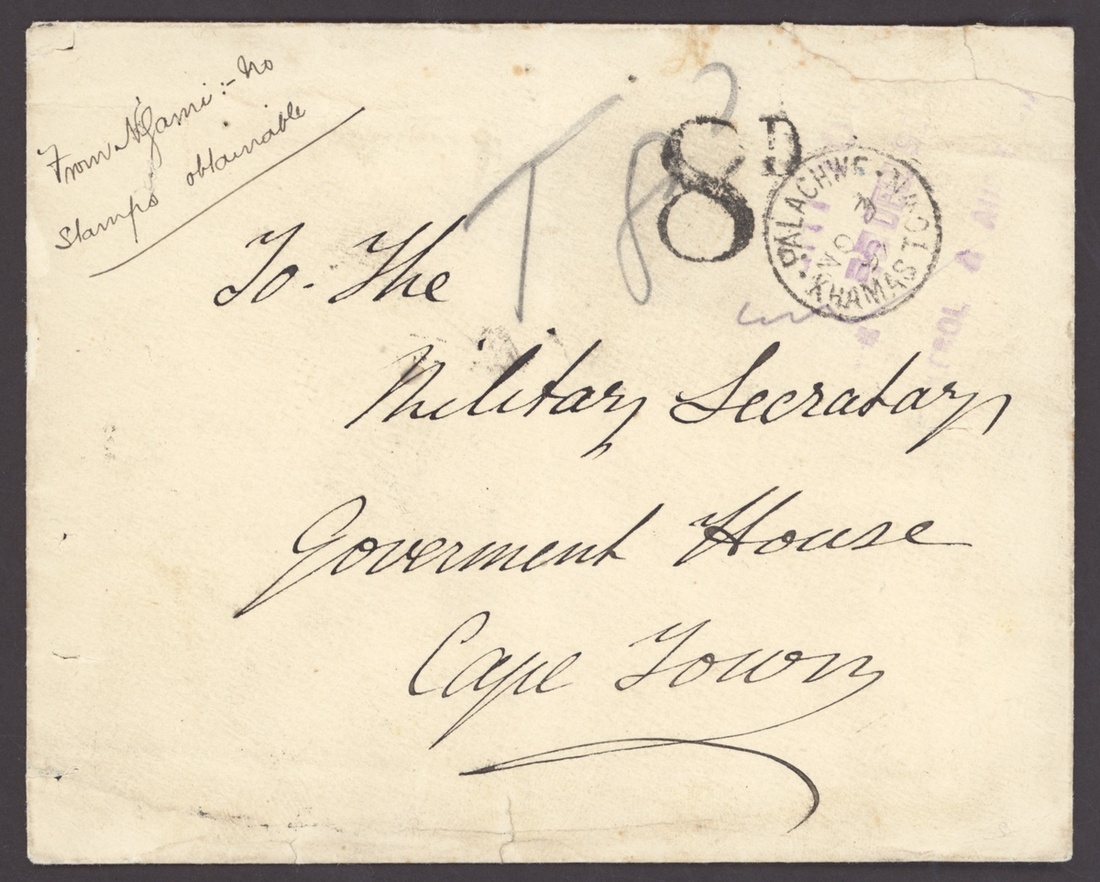 From N'Gami :- No
Stamps obtainable
T 8
8D
PALACHWE · KHAMASTOWN
NO
25
ROL &
To. The
Military Secratary
Goverment House
Cape Town